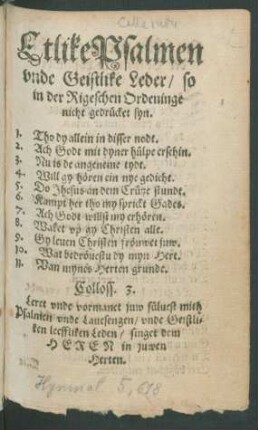 Etlike Psalmen
vnde Geistlike Leder / so
in der Rigeschen Ordeninge
nicht gedrücket syn.
1. Tho dy allein in disser nodt.
2. Ach Godt mit dyner hülpe erschin.
3. Nu is de angeneme tydt.
4. Will gy hören ein nye gedicht.
5. Do Jhesus an dem Crütze stundt.
6. Kampt her tho my sprickt Gades.
7. Ach Godt willst my erhören.
8. Waket vp gy Christen alle.
9. Gy leuen Christen fröuwet juw.
10. Wat bedröuestu dy myn Hert.
11. Van mynes Herten grunde.
Colloss. 3.
Leret vnde vormanet juw süluest mith
Psalmen vnde Lauesengen / vnde Geistli-
ken leefliken Leden / singet dem
HEREN in juwen
Herten.
Hymnal 5, 618